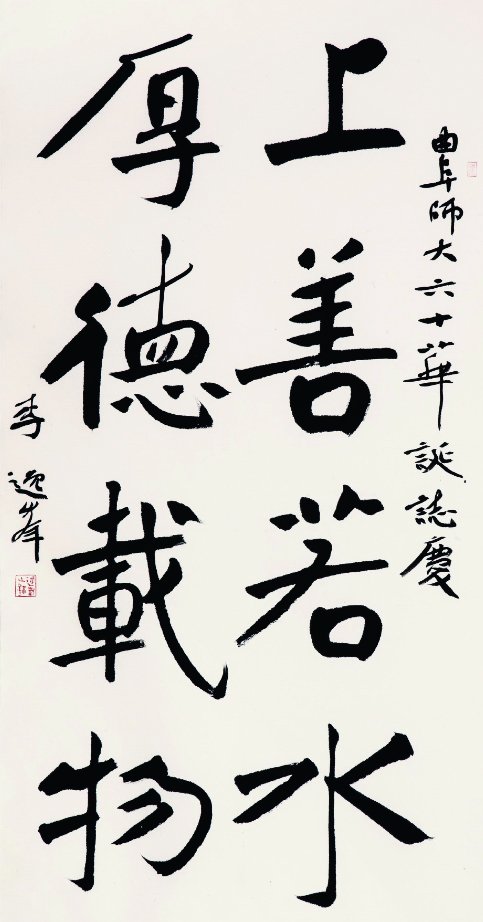 曲阜師大六十華誕誌慶
上善若水
厚德載物
李逸峰